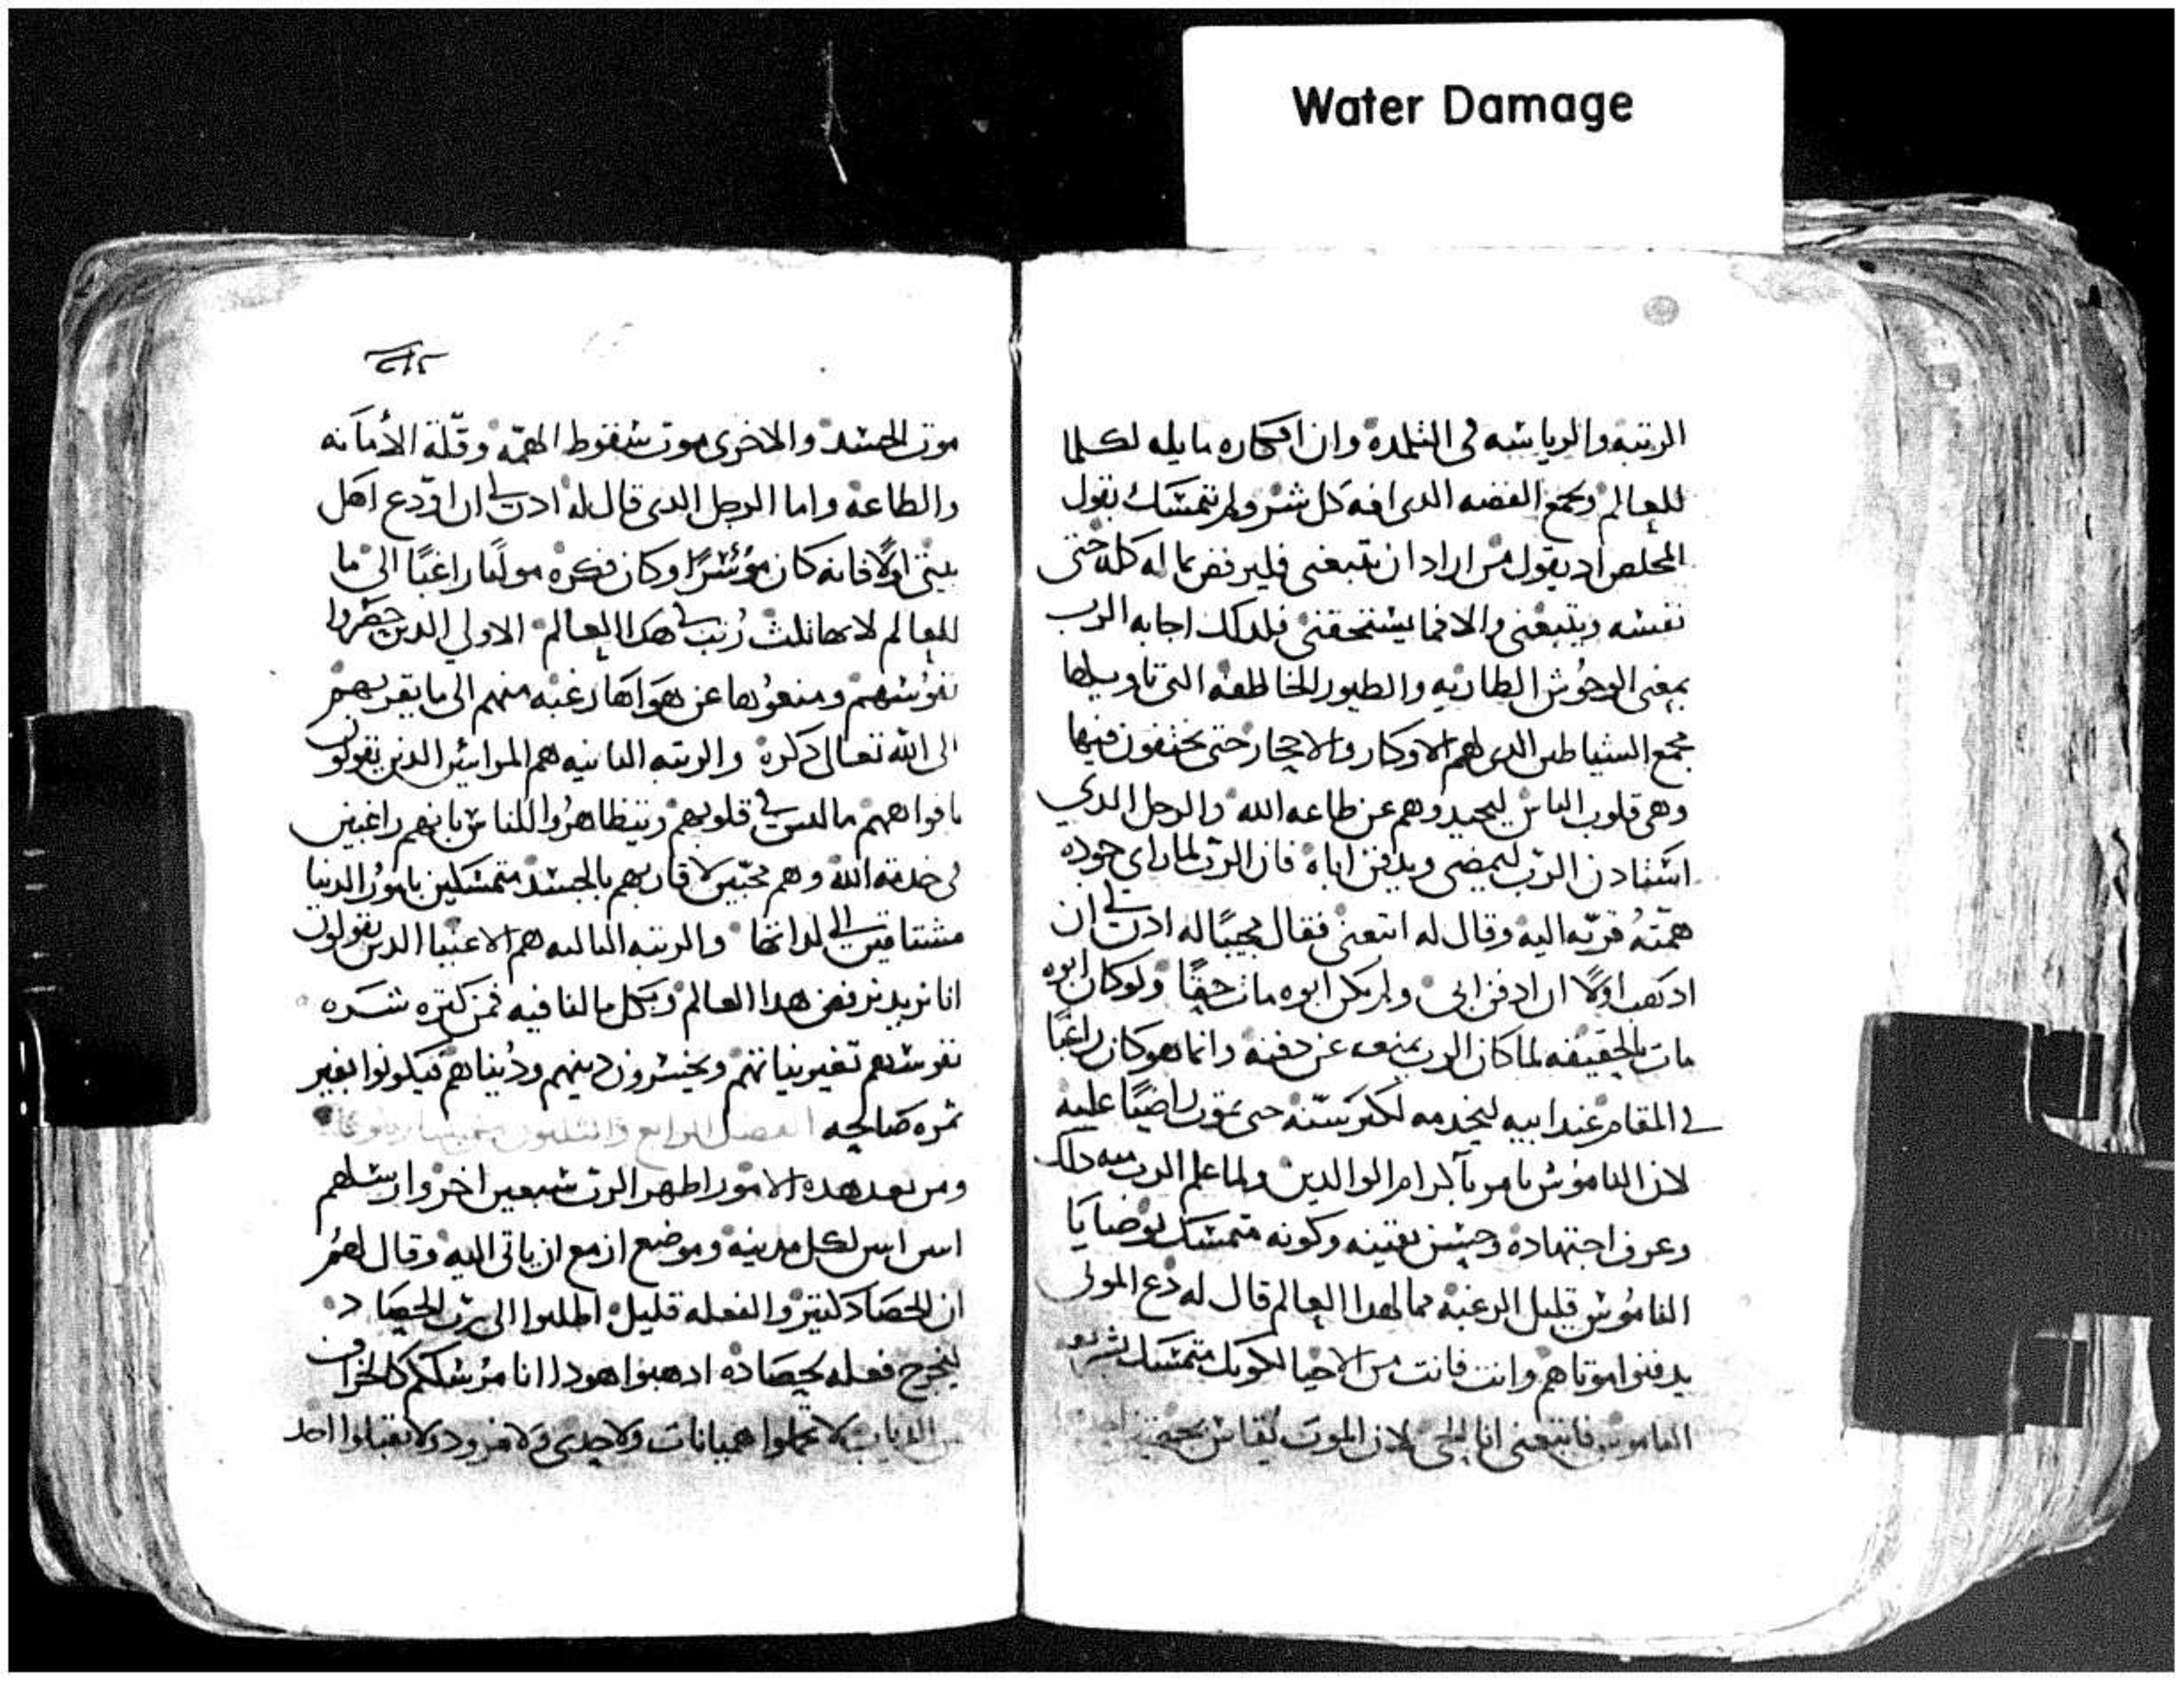 Water Damage
الرتبه والرياسه في التلمدة وان افكاره مايله لكلما
للعالم وبجمع الفضه الدى افة كل شر ولم يتمسك بقول
المخلص اد يقول من اراد ان يتبعنى فليرفض ما له كله حتى
نفسه ويتبعنى والا فما يستحقنى فلدلك اجابه الرب
بمعنى الوحوش الطاريه والطيور الخاطفة التى تاويلها
مجمع الشياطين الدى لهم الاوكار والاججار حتى يختفون فيها
وهى قلوب الناس ليحيدوهم عن طاعه الله والرجل الدي
استادن الرب ليمضى ويدفن اباة فان الرب لما راى جوده
همته قربه اليه وقال له اتبعنى فقال مجيبًا له ادن لي ان
ادهب اولًا ان ادفن ابى ولم يكن ابوه مات حقًا ولو كان ابوه
مات بالحقيقه لما كان الرب يمنعه عن دفنه وانما هو كان راغبًا
في المقام عند ابيه ليخدمه لكبر سنه حتى يموت راضيًا عليه
لان الناموس يامر باكرام الوالدين ولما علم الرب منه دلك
وعرف اجتهادة وحسن يقينه وكونه متمسك بوصايا
الناموس قليل الرغبة مما لهدا العالم قال له دع الموتى
يدفنوا موتاهم وانت فانت من الاحيا لكونك متمسك بشريعه
الناموس فاتبعنى انا الحى لان الموت يقاس بجهتين
موت الجسد والاخرى موت سقوط الهمّه وقلّة الأمانه
والطاعة واما الرجل الدى قال له ادن لي ان اودع اهل
بيتى اولًا فانه كان مؤسرًا وكان فكره مولعًا راغبًا الى ما
للعالم لانها تلت رتب في هدا العالم الاولي الدين حصروا
نفوسهم ومنعوها عن هواها رغبه منهم الى ما يقربهم
الى الله تعالى دكرة والرتبه التانيه هم المرائين الدين يقولون
بافواههم ما ليس في قلوبهم ويتظاهروا للناس بانهم راغبين
فى خدمة الله وهم محبّين لاقاربهم بالجسد متمسكين بامور الدنيا
مشتاقين الي لداتها والرتبه التالته هم الاغنيا الدين يقولون
انا نريد نرفض هدا العالم وبكل ما لنا فيه فمن كتره شره
نفوسهم تغير نياتهم ويخسرون دينهم ودنياهم فيكونوا بغير
تمره صالحه الفصل الرابع والتلتون
ومن بعد هده الامور اظهر الرب سبعين اخر وارسلهم
اتنين اتنين لكل مدينة وموضع ازمع ان ياتى اليه وقال لهم
ان الحصاد كتير والفعله قليل اطلبوا الى رب الحصاد
ليخرج فعله لحصاده ادهبوا هودا انا مرسلكم كالخراف
بين الدياب لا تحملوا هميانات ولا حدى ولا مزود ولا تقبلوا احد